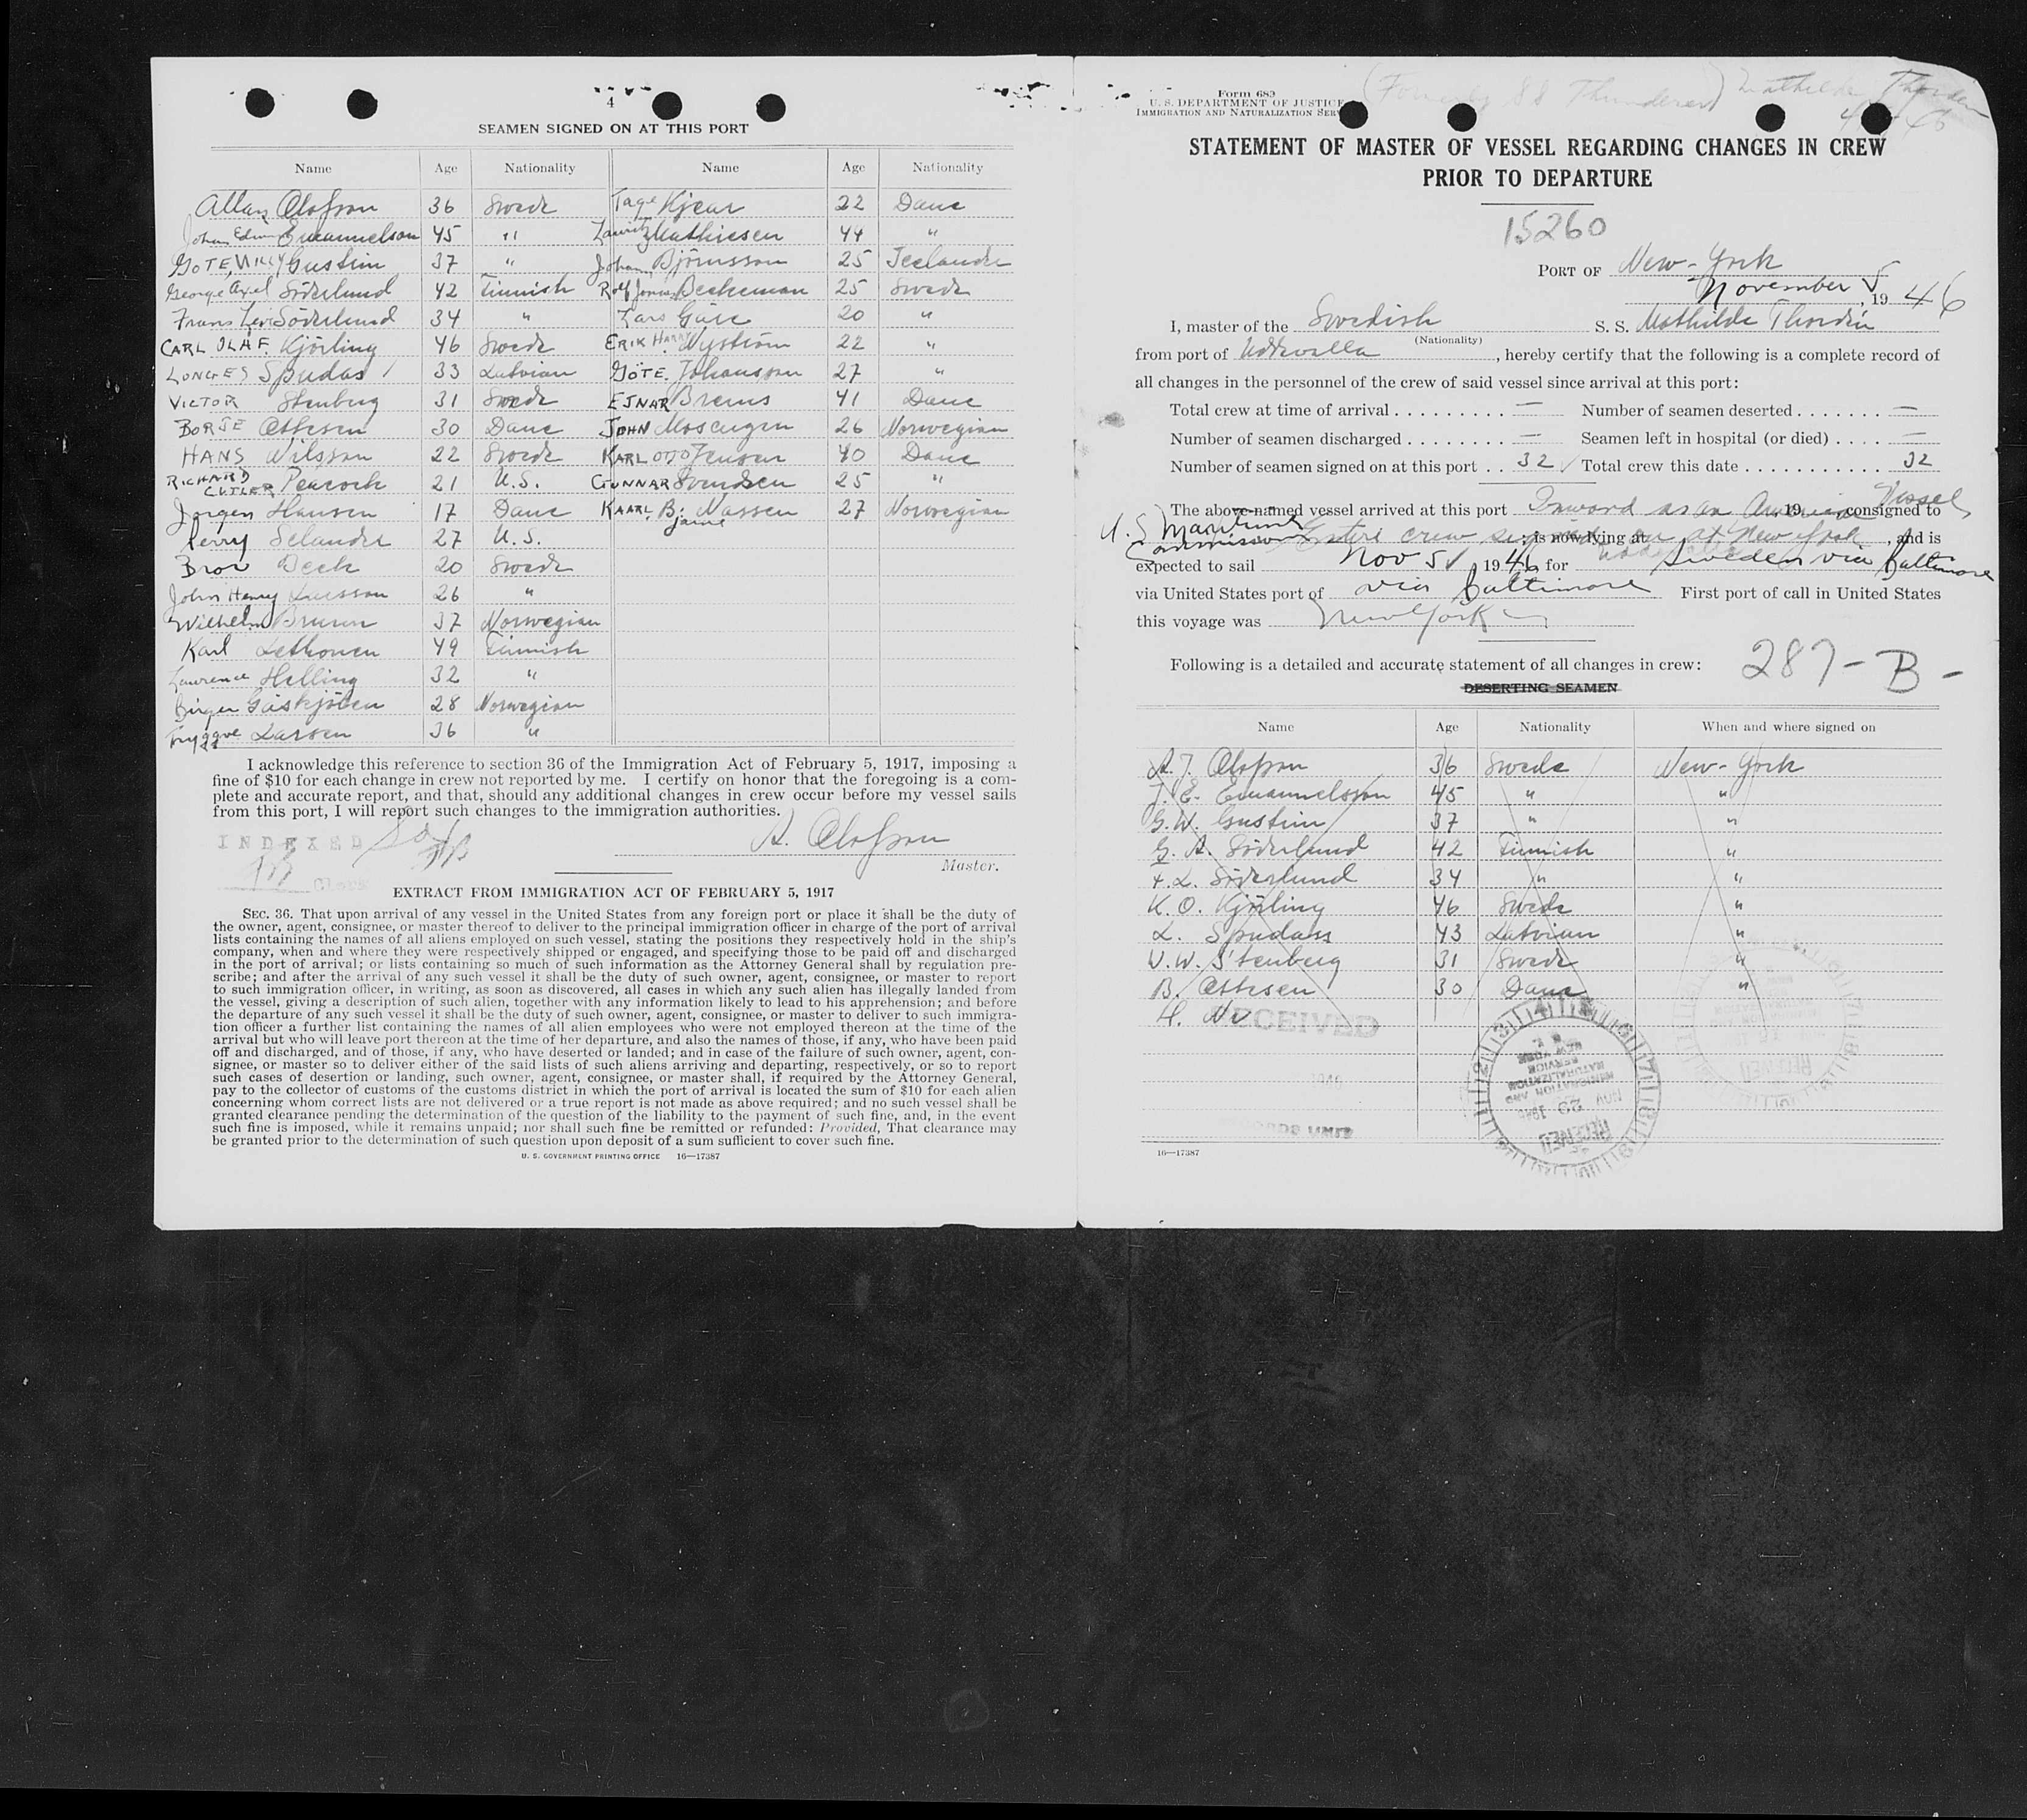 4
SEAMEN SIGNED ON AT THIS PORT
Name Age Nationality Name Age Nationality
Allan Olofson 36 Swede Tage Kjear 22 Dane
Johan Edwin Emanuelson 45 " Lauritz Mathiesen 44 "
GOTE, WILLY Gustin 37 " Johan Björnsson 25 Icelander
George Axel Söderlund 42 Finnish Rolf Jonas Beckeman 25 Swede
Frans Levi Söderlund 34 " Lars Gäre 20 "
CARL OLAF. Kjörling 46 Swede ERIK HARRY Nyström 22 "
LONGES Spudas 33 Latvian GÖTE. Johansson 27 "
VICTOR Stenberg 31 Swede EJNAR Brems 41 Dane
BORJE Ottesen 30 Dane JOHN Moseugen 26 Norwegian
HANS Nilsson 22 Swede KARL OTTO Jensen 40 Dane
RICHARD CUTLER Peacock 21 U.S. GUNNAR Svendsen 25 "
Jørgen Hansen 17 Dane KAARL B: jarne Nassen 27 Norwegian
Perry Selander 27 U.S.
Bror Deck 20 Swede
John Henry Larsson 26 "
Wilhelm Bruun 37 Norwegian
Karl Lethonen 49 Finnish
Lawrence Helling 32 "
Birger Gäskjölen 28 Norwegian
Tryggve Larsen 36 "
I acknowledge this reference to section 36 of the Immigration Act of February 5, 1917, imposing a
fine of $10 for each change in crew not reported by me. I certify on honor that the foregoing is a com-
plete and accurate report, and that, should any additional changes in crew occur before my vessel sails
from this port, I will report such changes to the immigration authorities.
INDEXED
Clerk
A. Olofson
Master.
EXTRACT FROM IMMIGRATION ACT OF FEBRUARY 5, 1917
SEC. 36. That upon arrival of any vessel in the United States from any foreign port or place it shall be the duty of
the owner, agent, consignee, or master thereof to deliver to the principal immigration officer in charge of the port of arrival
lists containing the names of all aliens employed on such vessel, stating the positions they respectively hold in the ship's
company, when and where they were respectively shipped or engaged, and specifying those to be paid off and discharged
in the port of arrival; or lists containing so much of such information as the Attorney General shall by regulation pre-
scribe; and after the arrival of any such vessel it shall be the duty of such owner, agent, consignee, or master to report
to such immigration officer, in writing, as soon as discovered, all cases in which any such alien has illegally landed from
the vessel, giving a description of such alien, together with any information likely to lead to his apprehension; and before
the departure of any such vessel it shall be the duty of such owner, agent, consignee, or master to deliver to such immigra-
tion officer a further list containing the names of all alien employees who were not employed thereon at the time of the
arrival but who will leave port thereon at the time of her departure, and also the names of those, if any, who have been paid
off and discharged, and of those, if any, who have deserted or landed; and in case of the failure of such owner, agent, con-
signee, or master so to deliver either of the said lists of such aliens arriving and departing, respectively, or so to report
such cases of desertion or landing, such owner, agent, consignee, or master shall, if required by the Attorney General,
pay to the collector of customs of the customs district in which the port of arrival is located the sum of $10 for each alien
concerning whom correct lists are not delivered or a true report is not made as above required; and no such vessel shall be
granted clearance pending the determination of the question of the liability to the payment of such fine, and, in the event
such fine is imposed, while it remains unpaid; nor shall such fine be remitted or refunded: Provided, That clearance may
be granted prior to the determination of such question upon deposit of a sum sufficient to cover such fine.
U. S. GOVERNMENT PRINTING OFFICE 16—17387
(Formerly SS Thunderer) Mathilda Thorden
Form 689
U. S. DEPARTMENT OF JUSTICE
IMMIGRATION AND NATURALIZATION SERV
STATEMENT OF MASTER OF VESSEL REGARDING CHANGES IN CREW
PRIOR TO DEPARTURE
15260
PORT OF New-York
November 5, 1946
I, master of the Swedish S. S. Mathilda Thordén
(Nationality)
from port of Uddevalla, hereby certify that the following is a complete record of
all changes in the personnel of the crew of said vessel since arrival at this port:
Total crew at time of arrival — Number of seamen deserted —
Number of seamen discharged — Seamen left in hospital (or died) —
Number of seamen signed on at this port 32 Total crew this date 32
The above-named vessel arrived at this port Inward as an American Vessel, 19 consigned to
U. S. Maritime Commission Entire crew signed on at New York; is now lying at, and is
expected to sail Nov 5, 1946, for Sweden via Baltimore
via United States port of via Baltimore First port of call in United States
this voyage was New York
Following is a detailed and accurate statement of all changes in crew:
287-B-
DESERTING SEAMEN
Name Age Nationality When and where signed on
A. J. Olofson 36 Swede New-York
J. E. Emanuelsson 45 " "
G. W. Gustin 37 " "
G. A. Söderlund 42 Finnish "
F. L. Söderlund 34 " "
K. O. Kjörling 46 Swede "
L. Spudass 43 Latvian "
V. W. Stenberg 31 Swede "
B. Ottesen 30 Dane "
H. Nv
RECEIVED
1946
RECORDS UNIT
RECEIVED
NOV 29 1946
IMMIGRATION AND
NATURALIZATION
SERVICE
NEW YORK
16—17387